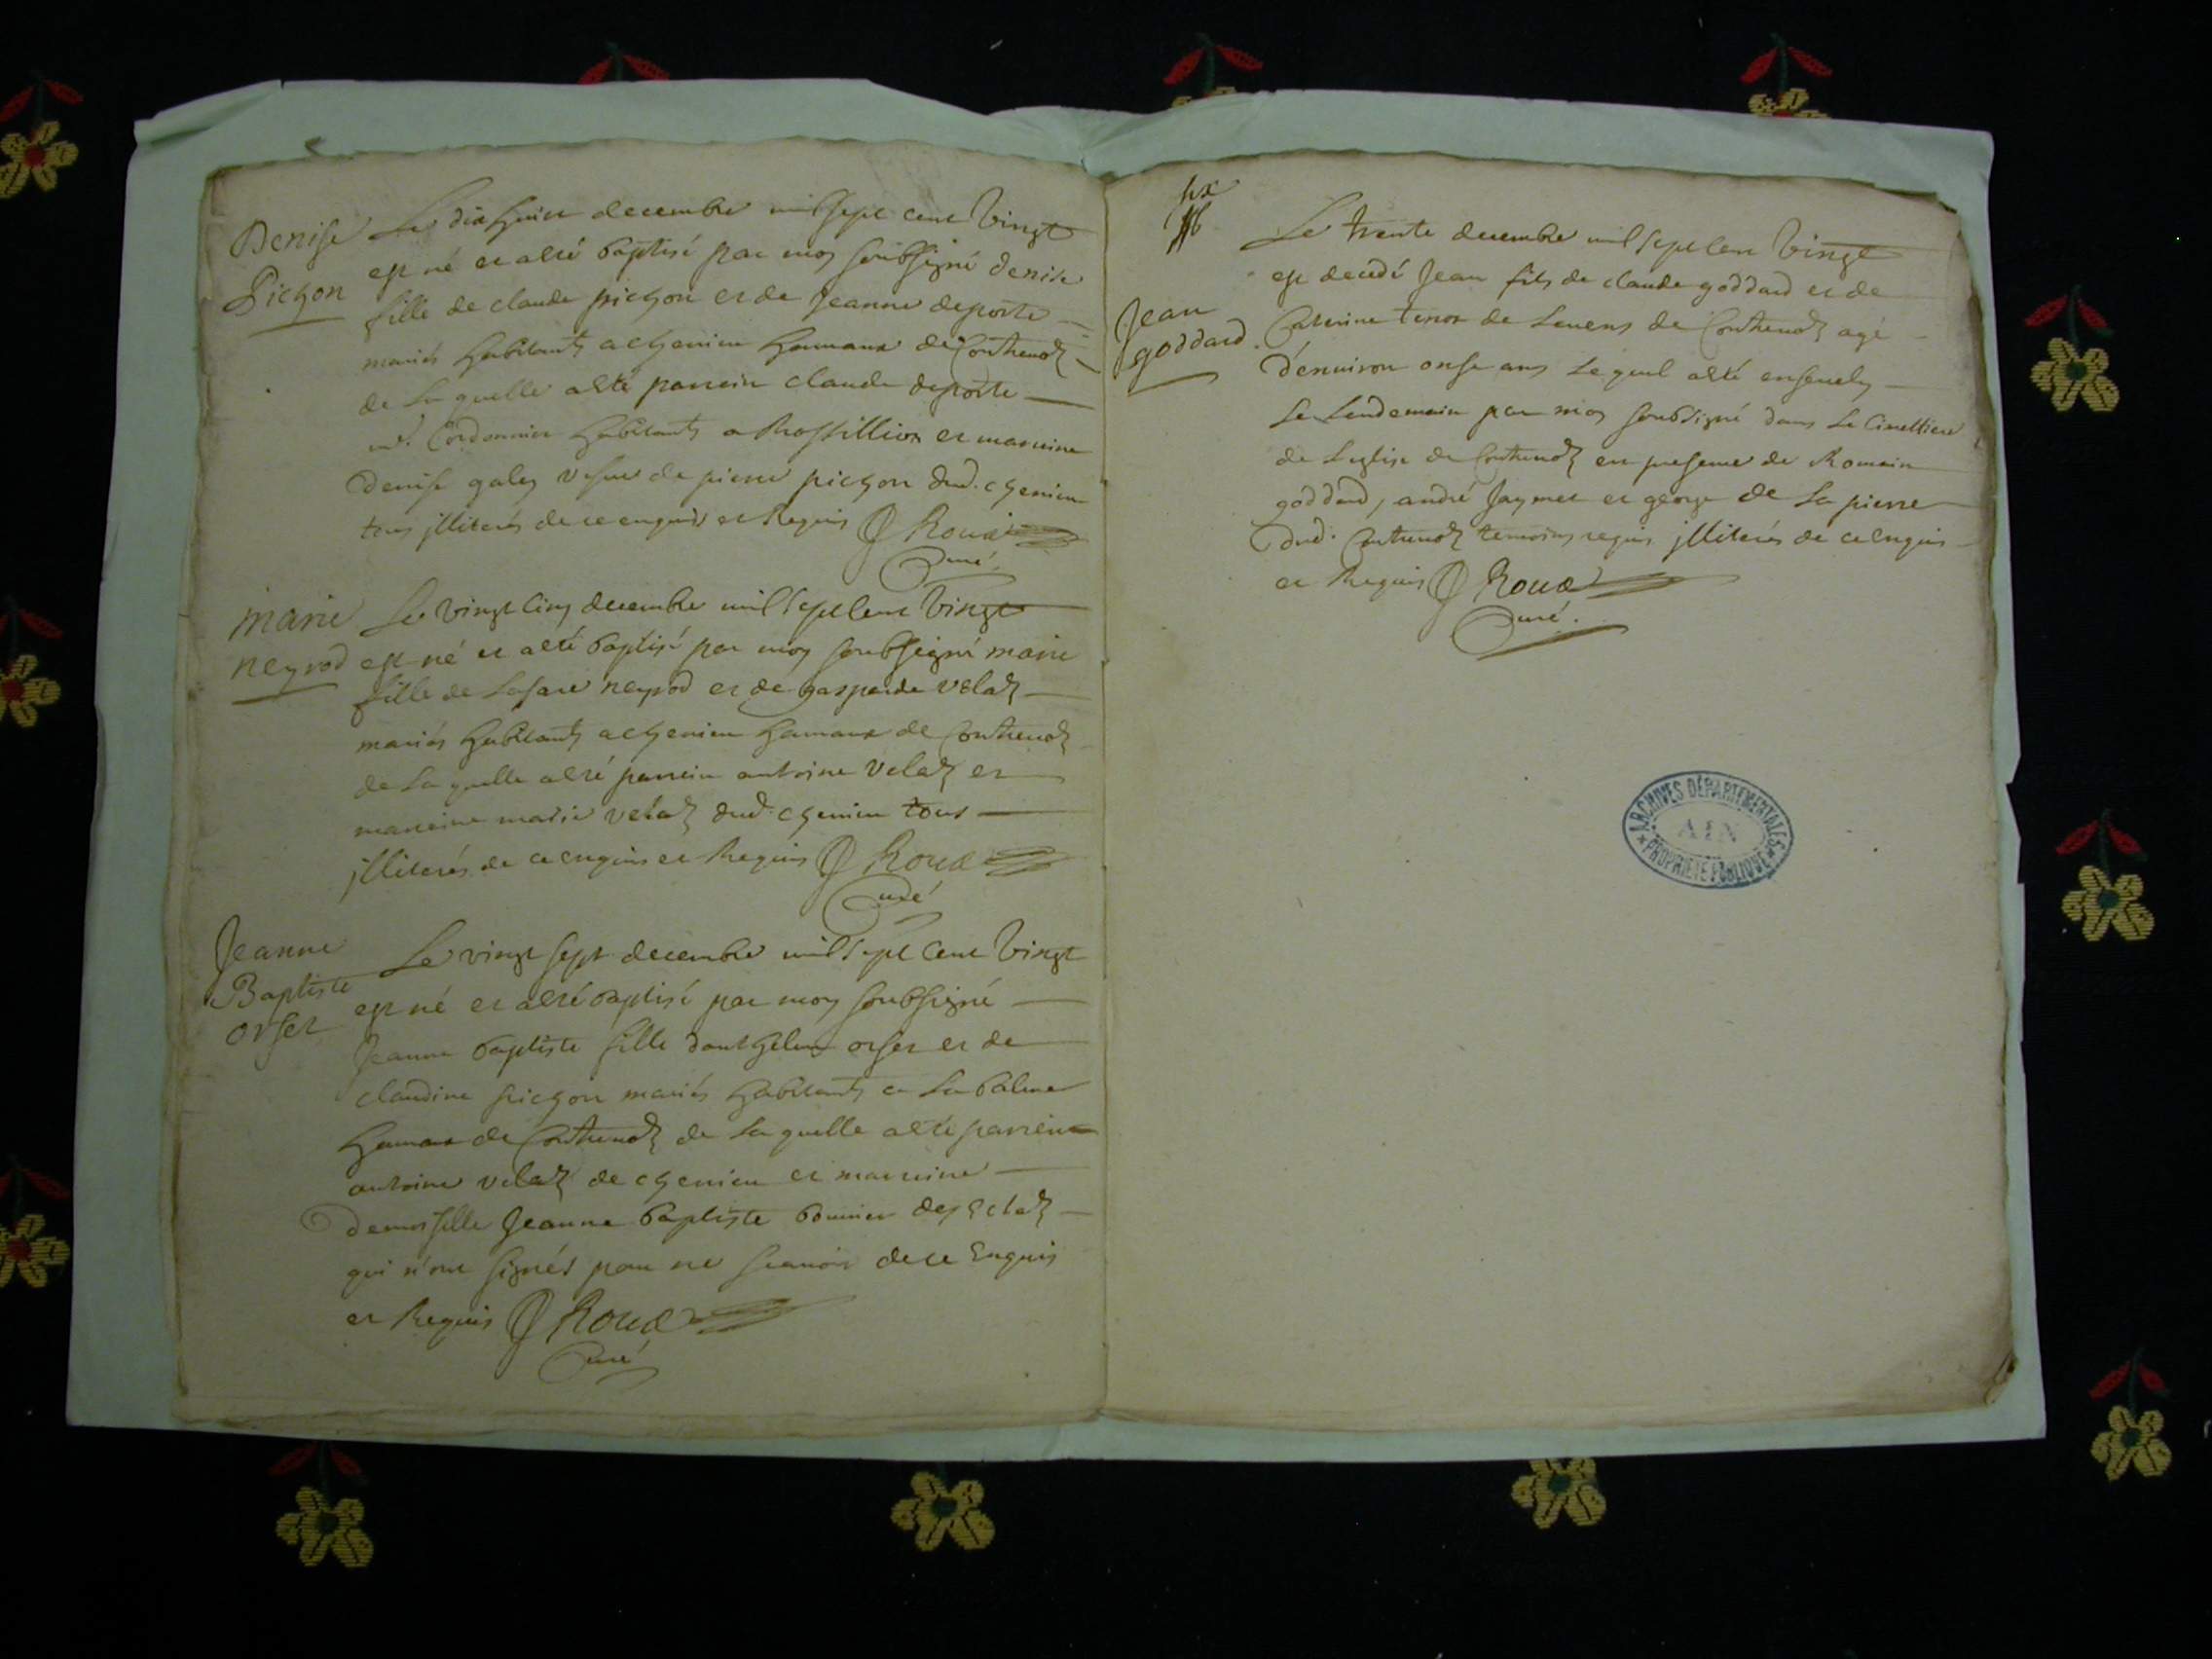 Denise
Pichon
Le dix huict decembre mil sept cent vingt
est né et a esté baptisé par moy soubsigné denise
fille de claude pichon et de Jeanne deporte
mariés habitants a chemieu hamaux de Contrevoz
de la quelle a esté parrein claude deporte
Cordonnier habitants a Rossillion et marreine
denise galey vefue de pierre pichon dud. chemieu
tous illiterés de ce enquis et Requis Roux
Curé
marie
neyrod
Le vingt cinq decembre mil sept cent vingt
est né et a esté baptisé par moy soubsigné marie
fille de Lasare neyrod et de gasparde velaz
mariés habitants a chemieu hamaux de Contrevoz
de la quelle a esté parrein antoine velaz et
marreine marie velaz dud. chemieu tous
illiterés de ce enquis et Requis Roux
Curé
Jeanne
Baptiste
orset
Le vingt sept decembre mil sept cent vingt
est né et a esté baptisé par moy soubsigné
Jeanne baptiste fille danthelme orset et de
claudine pichon mariés habitants a La balme
hamaux de Contrevoz de la quelle a esté parrein
antoine velaz de chemieu et marreine
demoiselle Jeanne baptiste
qui n'ont signés pour ne scauoir de ce Enquis
et Requis Roux
Curé
Le trente decembre mil sept cent vingt
est decedé Jean fils de claude goddard et de
Jean
goddard
Caterine de de Contrevoz agé
d'enuiron onse ans Lequel a esté enseuely
Le Lendemain par moy soubsigné dans Le Cimettiere
de Leglise de Contrevoz en presence de Romain
goddard, andré Jaymet et george de La pierre
dud. Contrevoz temoins requis illiterés de ce enquis
et Requis Roux
Curé.
ARCHIVES DÉPARTEMENTALES
AIN
PROPRIÉTÉ PUBLIQUE